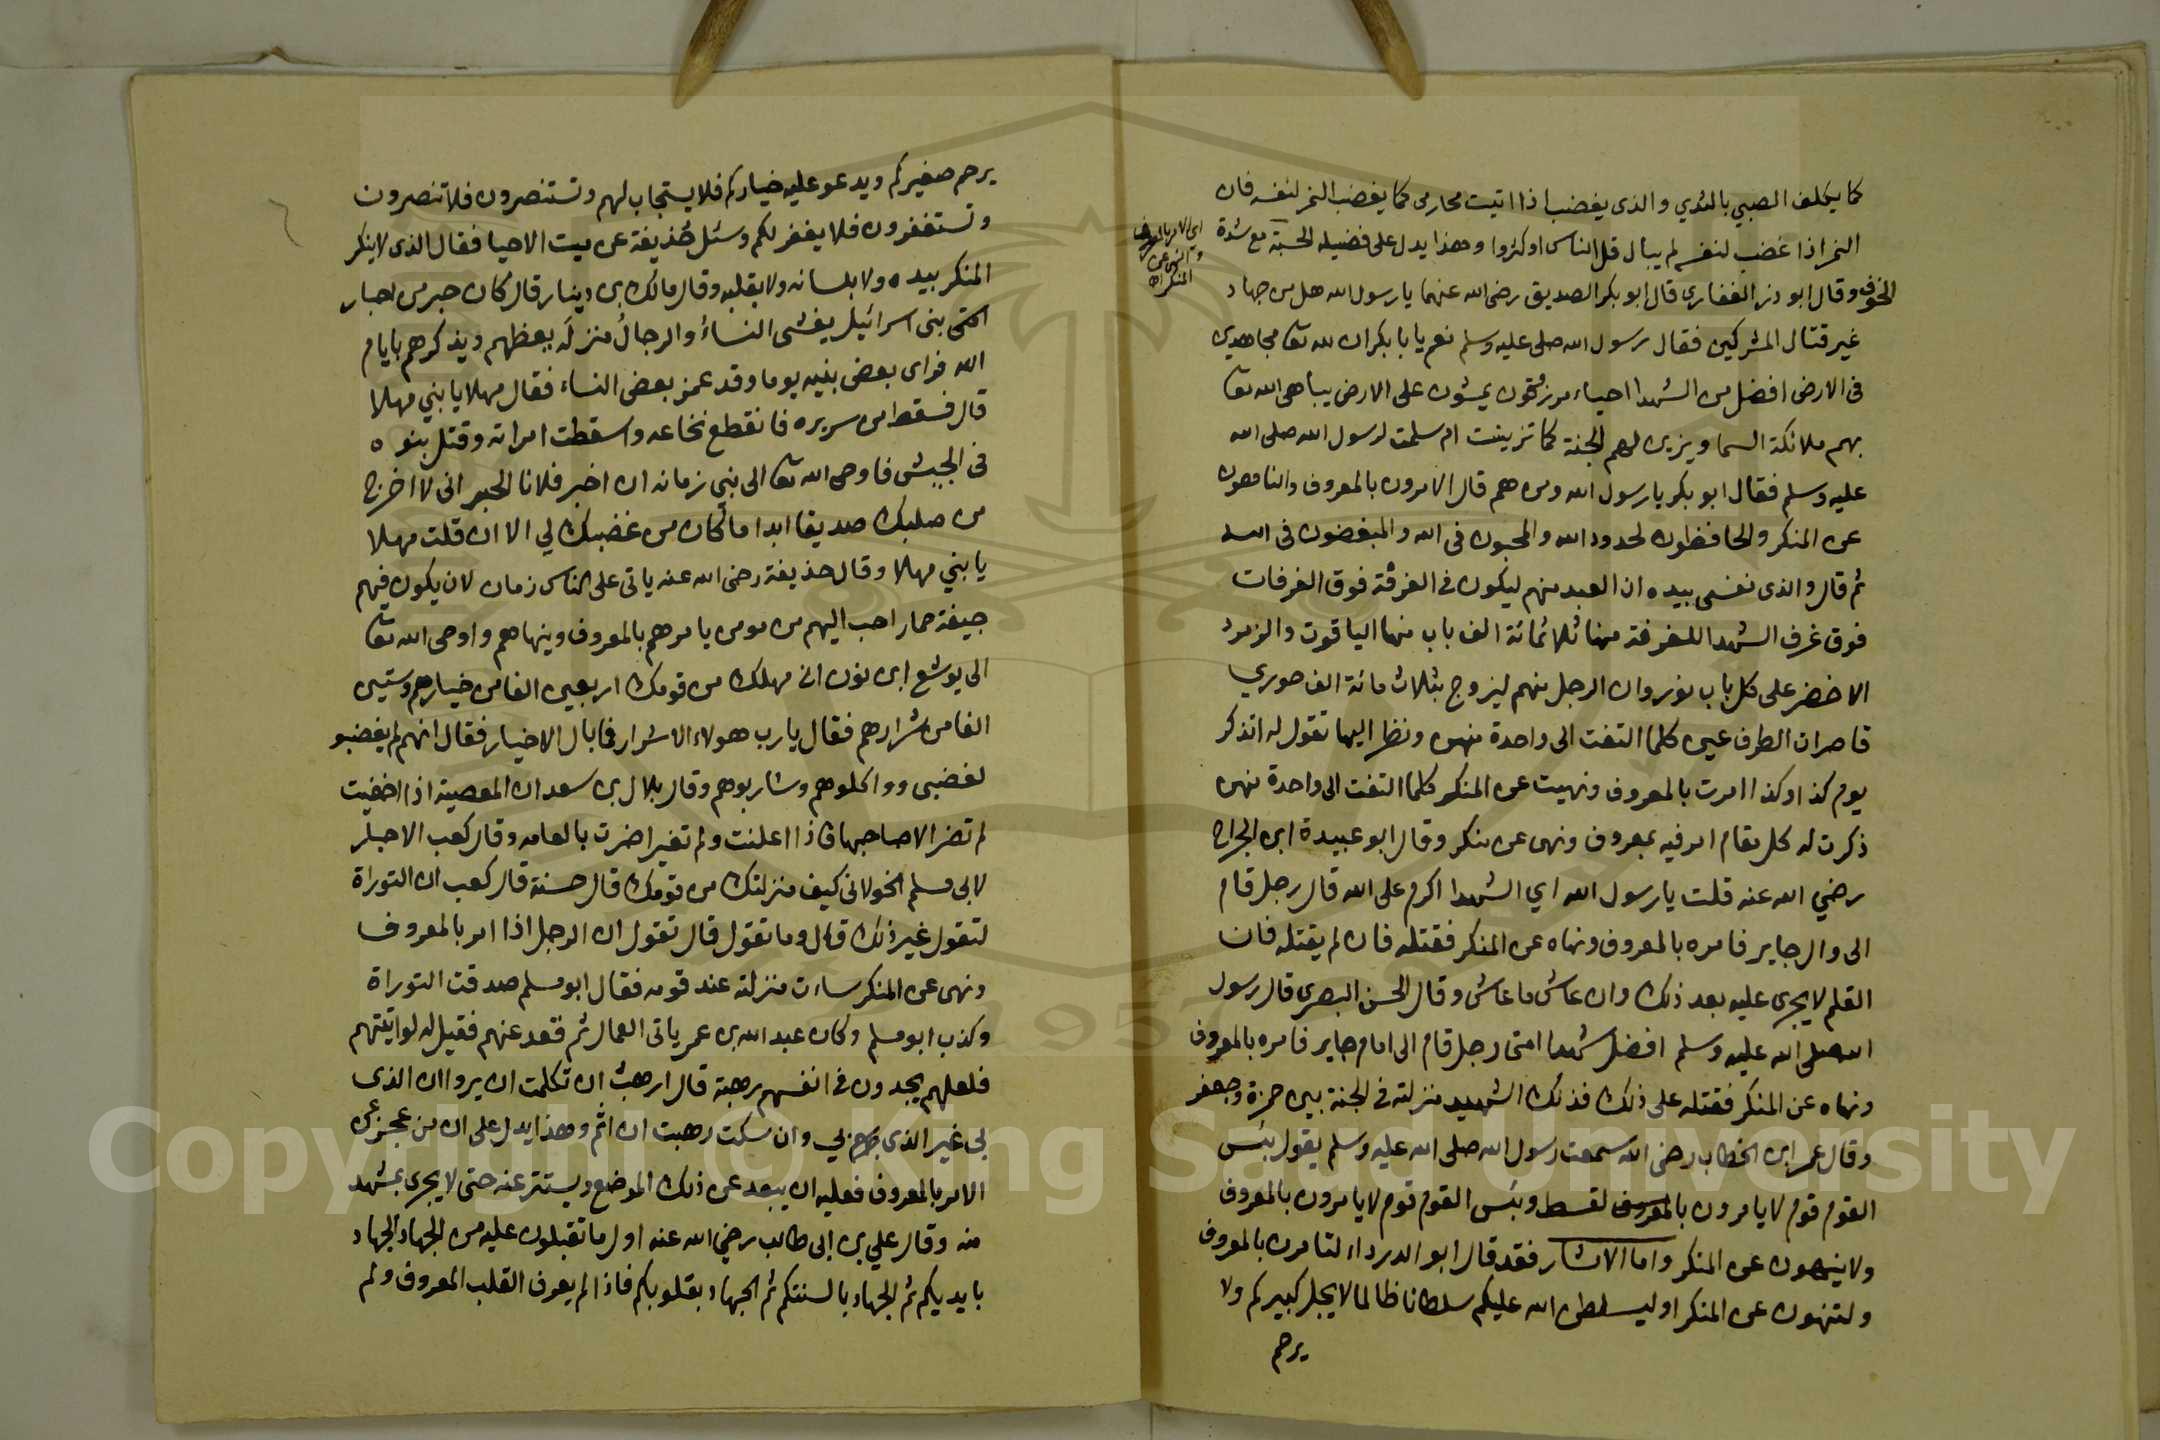 كما يكلف الصبي بالثدي والذى يغضب اذا اتيت محارمى كما يغضب النمر لنفسه فان
النمر اذا غضب لنفسه لم يبال قل الناس او كثروا وهذا يدل على فضيلة الحسبة مع شدة
اي الامر بالمعروف
والنهي عن
المنكرات
الخوف وقال ابو ذر الغفاري قال ابو بكر الصديق رضى الله عنهما يا رسول الله هل من جهاد
غير قتال المشركين فقال رسول الله صلى عليه وسلم نعم يا با بكر ان لله تعا مجاهدين
فى الارض افضل من الشهدا احياء مرزقون يمشون على الارض يباهى الله تعا
بهم ملائكة السما ويزين لهم الجنة كما تزينت ام سلمت لرسول الله صلى الله
عليه وسلم فقال ابو بكر يا رسول الله ومن هم قال الامرون بالمعروف والناهون
عن المنكر والحافظون لحدود الله والمحبون فى الله والمبغضون فى الله
ثم قال والذى نفسى بيده ان العبد منهم ليكون فى الغرفة فوق الغرفات
فوق غرف الشهدا للغرفة منها ثلاثمائة الف باب منها الياقوت والزمرد
الاخضر على كل باب نور وان الرجل منهم ليزوج بثلاث مائة الف حوري
قاصران الطرف عين كلما التفت الى واحدة منهن ونظر اليها تقول له اتذكر
يوم كذا وكذا امرت بالمعروف ونهيت عن المنكر كلما التفت الى واحدة منهن
ذكرت له كل مقام امر فيه بمعروف ونهى عن منكر وقال ابو عبيدة ابن الجراح
رضي الله عنه قلت يا رسول الله اي الشهدا اكرم على الله قال رجل قام
الى وال جاير فامره بالمعروف ونهاه عن المنكر فقتله فان لم يقتله فان
القلم لا يجرى عليه بعد ذلك وان عاش ما عاش وقال الحسن البصرى قال رسول
الله صلى الله عليه وسلم افضل شهدا امتى رجل قام الى امام جاير فامره بالمعروف
ونهاه عن المنكر فقتله على ذلك فذلك الشهيد منزلته فى الجنة بين حمزة وجعفر
وقال عمر ابن الخطاب رضى الله سمعت رسول الله صلى الله عليه وسلم يقول بئس
القوم قوم لا يامرون بالمعروف لقسط وبئس القوم قوم لا يامرون بالمعروف
ولا ينهون عن المنكر واما الاثار فقد قال ابو الدرداء لتامرن بالمعروف
ولتنهون عن المنكر او ليسلطن الله عليكم سلطانا ظالما لا يجل كبيركم ولا
يرحم
يرحم صغيركم ويدعو عليه خياركم فلا يستجاب لهم وتستنصرون فلا تنصرون
وتستغفرون فلا يغفر لكم وسئل حذيفة عن ميت الاحيا فقال الذى لا ينكر
المنكر بيده ولا بلسانه ولا بقلبه وقال مالك بن دينار قال كان حبر من احبار
بنى اسرائيل يغشى النساءُ والرجالُ منزله يعظهم ويذكرهم بايام
الله فراى بعض بنيه يوما وقد غمز بعض النساء فقال مهلا يا بني مهلا
قال فسقط من سريره فانقطع نخاعه واسقطت امراته وقتل بنوه
فى الجيش فاوحى الله تعا الى نبي زمانه ان اخبر فلانا الحبر انى لا اخرج
من صلبك صديقا ابدا ما كان من غضبك لي الا ان قلت مهلا
يا بني مهلا وقال حذيفة رضى الله عنه ياتى على الناس زمان لان يكون فيهم
جيفة حمار احب اليهم من مومن يامرهم بالمعروف وينهاهم واوحى الله تعا
الى يوشع ابن نون انى مهلك من قومك اربعين الفا من خيارهم وستين
الفا من شرارهم فقال يا رب هولاء الاشرار فما بال الاخيار فقال انهم لم يغضبو
لغضبى وواكلوهم وشاربوهم وقال بلال بن سعد ان المعصية اذا اخفيت
لم تضر الا صاحبها فاذا اعلنت ولم تغير اضرت بالعامه وقال كعب الاحبار
لابى مسلم الخولانى كيف منزلتك من قومك قال حسنة قال كعب ان التوراة
لتقول غير ذلك قال وما تقول قال تقول ان الرجل اذا امر بالمعروف
ونهى عن المنكر ساءت منزلته عند قومه فقال ابو مسلم صدقت التوراة
وكذب ابو مسلم وكان عبد الله بن عمر ياتى العمال ثم قعد عنهم فقيل له لو اتيتهم
فلعلهم يجدون فى انفسهم رهبة قال ارهب ان تكلمت ان يروا ان الذى
بى غير الذى بي وان سكت رهبت ان اثم وهذا يدل على ان من عجز عن
الامر بالمعروف فعليه ان يبعد عن ذلك الموضع ويستتر عنه حتى لا يجرى بمشهد
منه وقال علي بن ابى طالب رضي الله عنه اول ما تقبلون عليه من الجهاد الجهاد
بايديكم ثم الجهاد بالسنتكم ثم الجهاد بقلوبكم فاذا لم يعرف القلب المعروف ولم
Copyright © King Saud University
1957